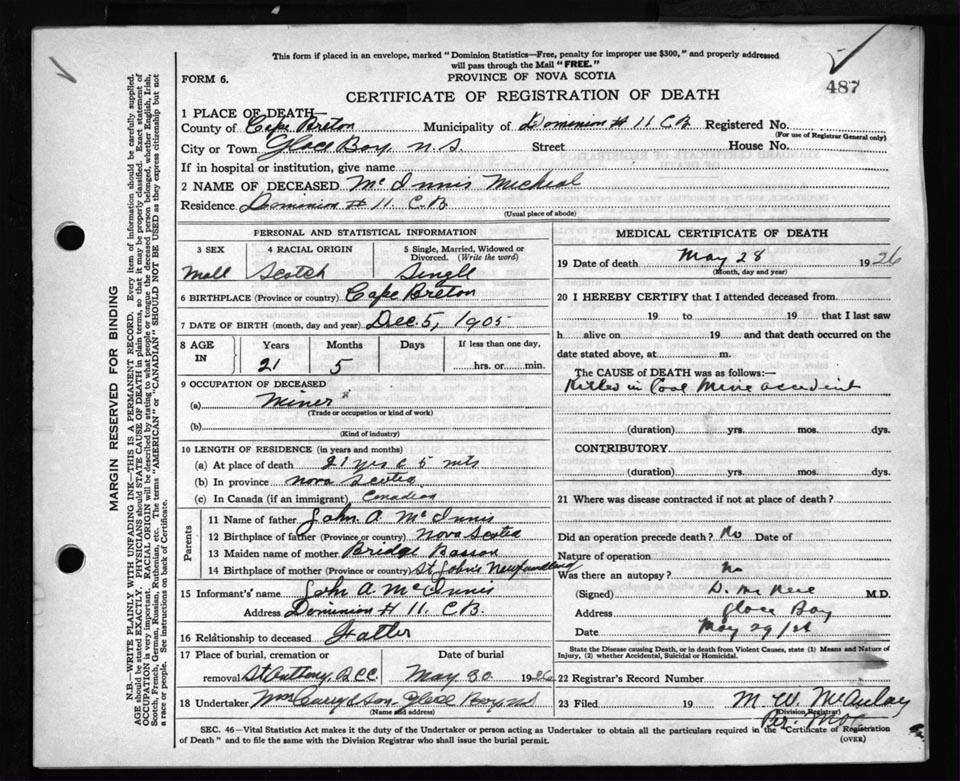 This form if placed in an envelope, marked "Dominion Statistics—Free, penalty for improper use $300," and properly addressed
will pass through the Mail "FREE."
FORM 6.
PROVINCE OF NOVA SCOTIA
487
CERTIFICATE OF REGISTRATION OF DEATH
1 PLACE OF DEATH—
County of Cape Breton Municipality of Dominion # 11 C.B. Registered No.
(For use of Registrar General only)
City or Town Glace Bay N.S. Street House No.
If in hospital or institution, give name
2 NAME OF DECEASED McInnis Micheal
Residence Dominion # 11 C.B.
(Usual place of abode)
PERSONAL AND STATISTICAL INFORMATION
3 SEX 4 RACIAL ORIGIN 5 Single, Married, Widowed or
Divorced. (Write the word)
Mall Scotch Singll
6 BIRTHPLACE (Province or country) Cape Breton
7 DATE OF BIRTH (month, day and year) Dec 5, 1905
8 AGE IN Years Months Days If less than one day,
21 5 hrs. or min.
9 OCCUPATION OF DECEASED
(a) Miner
(Trade or occupation or kind of work)
(b)
(Kind of industry)
10 LENGTH OF RESIDENCE (in years and months)
(a) At place of death 21 yrs 5 mts
(b) In province Nova Scotia
(c) In Canada (if an immigrant) Canadian
Parents
11 Name of father John A. McInnis
12 Birthplace of father (Province or country) Nova Scotia
13 Maiden name of mother Bridge
14 Birthplace of mother (Province or country) St Johns Newfundland
15 Informant's name John A. McInnis
Address Dominion # 11. C.B.
16 Relationship to deceased Father
17 Place of burial, cremation or Date of burial
removal St Anthony May 30 1926
18 Undertaker Son Glace Bay NS
(Name and address)
MEDICAL CERTIFICATE OF DEATH
19 Date of death May 28 1926
(Month, day and year)
20 I HEREBY CERTIFY that I attended deceased from
19 to 19 that I last saw
h alive on 19 and that death occurred on the
date stated above, at m.
The CAUSE of DEATH was as follows:—
Killed in Coal Mine accident
(duration) yrs. mos. dys.
CONTRIBUTORY
(duration) yrs. mos. dys.
21 Where was disease contracted if not at place of death?
Did an operation precede death? No Date of
Nature of operation
Was there an autopsy? No
(Signed) M.D.
Address Glace Bay
Date May 29/26
State the Disease causing Death, or in death from Violent Causes, state (1) Means and Nature of
Injury, (2) whether Accidental, Suicidal or Homicidal.
22 Registrar's Record Number
23 Filed 19 M. W. McAulay
(Division Registrar)
Per.
SEC. 46—Vital Statistics Act makes it the duty of the Undertaker or person acting as Undertaker to obtain all the particulars required in the "Certificate of Registration
of Death" and to file the same with the Division Registrar who shall issue the burial permit.
(OVER)
MARGIN RESERVED FOR BINDING
N.B.—WRITE PLAINLY WITH UNFADING INK—THIS IS A PERMANENT RECORD. Every item of information should be carefully supplied.
AGE should be stated EXACTLY. PHYSICIANS should STATE CAUSE OF DEATH in plain terms, so that it may be properly classified. Exact statement of
OCCUPATION is very important. RACIAL ORIGIN will be described by stating to what people or tongue the deceased person belonged, whether English, Irish,
Scotch, French, German, Russian, Ruthenian, etc. The terms "AMERICAN" or "CANADIAN" SHOULD NOT BE USED as they express citizenship but not
a race or people. See instructions on back of Certificate.